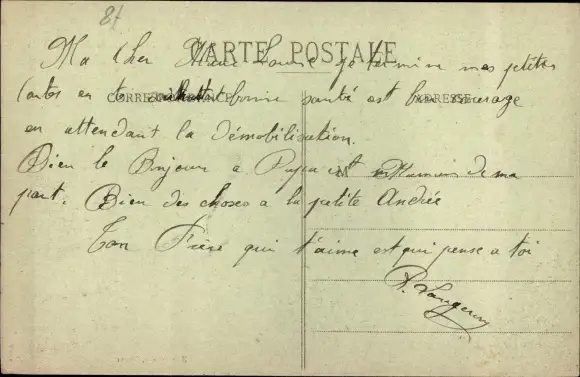 81
CARTE POSTALE
Ma Cher Marie Louise je termine mes petites
Cartes en te souhaitant bonne santé est bon courage
CORRESPONDANCE ADRESSE
en attendant la Démobilisation.
Bien le Bonjour a Papa est Maman de ma
part. Bien des choses a la petite Andrée
Ton Frère qui t'aime est qui pense a toi